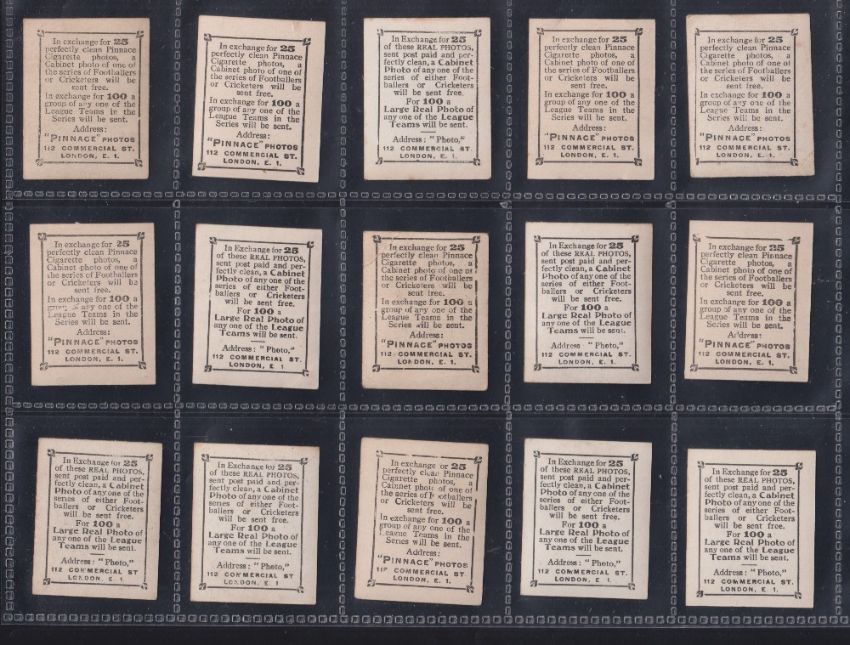 In exchange for 25
perfectly clean Pinnace
Cigarette photos, a
Cabinet photo of one of
the series of Footballers
or Cricketers will be
sent free.
In exchange for 100 a
group of any one of the
League Teams in the
Series will be sent.
Address:
"PINNACE" PHOTOS
112 COMMERCIAL ST.
LONDON, E. 1.
In exchange for 25
perfectly clean Pinnace
Cigarette photos, a
Cabinet photo of one of
the series of Footballers
or Cricketers will be
sent free.
In exchange for 100 a
group of any one of the
League Teams in the
Series will be sent.
Address:
"PINNACE" PHOTOS
112 COMMERCIAL ST.
LONDON, E. 1.
In Exchange for 25
of these REAL PHOTOS,
sent post paid and per-
fectly clean, a Cabinet
Photo of any one of the
series of either Foot-
ballers or Cricketers
will be sent free.
For 100 a
Large Real Photo of
any one of the League
Teams will be sent.
Address: "Photo,"
112 COMMERCIAL ST.
LONDON, E. 1.
In exchange for 25
perfectly clean Pinnace
Cigarette photos, a
Cabinet photo of one of
the series of Footballers
or Cricketers will be
sent free.
In exchange for 100 a
group of any one of the
League Teams in the
Series will be sent.
Address:
"PINNACE" PHOTOS
112 COMMERCIAL ST.
LONDON, E. 1.
In exchange for 25
perfectly clean Pinnace
Cigarette photos, a
Cabinet photo of one of
the series of Footballers
or Cricketers will be
sent free.
In exchange for 100 a
group of any one of the
League Teams in the
Series will be sent.
Address:
"PINNACE" PHOTOS
112 COMMERCIAL ST.
LONDON, E. 1.
In exchange for 25
perfectly clean Pinnace
Cigarette photos, a
Cabinet photo of one of
the series of Footballers
or Cricketers will be
sent free.
In exchange for 100 a
group of any one of the
League Teams in the
Series will be sent.
Address:
"PINNACE" PHOTOS
112 COMMERCIAL ST.
LONDON, E. 1.
In Exchange for 25
of these REAL PHOTOS,
sent post paid and per-
fectly clean, a Cabinet
Photo of any one of the
series of either Foot-
ballers or Cricketers
will be sent free.
For 100 a
Large Real Photo of
any one of the League
Teams will be sent.
Address: "Photo,"
112 COMMERCIAL ST.
LONDON, E. 1
In exchange for 25
perfectly clean Pinnace
Cigarette photos, a
Cabinet photo of one of
the series of Footballers
or Cricketers will be
sent free.
In exchange for 100 a
group of any one of the
League Teams in the
Series will be sent.
Address:
"PINNACE" PHOTOS
112 COMMERCIAL ST.
LONDON, E. 1.
In Exchange for 25
of these REAL PHOTOS,
sent post paid and per-
fectly clean, a Cabinet
Photo of any one of the
series of either Foot-
ballers or Cricketers
will be sent free.
For 100 a
Large Real Photo of
any one of the League
Teams will be sent.
Address: "Photo,"
112 COMMERCIAL ST.
LONDON, E. 1.
In exchange for 25
perfectly clean Pinnace
Cigarette photos, a
Cabinet photo of one of
the series of Footballers
or Cricketers will be
sent free.
In exchange for 100 a
group of any one of the
League Teams in the
Series will be sent.
Address:
"PINNACE" PHOTOS
112 COMMERCIAL ST.
LONDON, E. 1.
In Exchange for 25
of these REAL PHOTOS,
sent post paid and per-
fectly clean, a Cabinet
Photo of any one of the
series of either Foot-
ballers or Cricketers
will be sent free.
For 100 a
Large Real Photo of
any one of the League
Teams will be sent.
Address: "Photo,"
112 COMMERCIAL ST.
LONDON, E. 1.
In Exchange for 25
of these REAL PHOTOS,
sent post paid and per-
fectly clean, a Cabinet
Photo of any one of the
series of either Foot-
ballers or Cricketers
will be sent free.
For 100 a
Large Real Photo of
any one of the League
Teams will be sent.
Address: "Photo,"
112 COMMERCIAL ST.
LONDON, E. 1.
In exchange or 25
perfectly clean Pinnace
Cigarette photos, a
Cabinet photo of one of
the series of Footballers
or Cricketers will be
sent free.
In exchange for 100 a
group of any one of the
League Teams in the
Series will be sent.
Address:
"PINNACE" PHOTOS
COMMERCIAL ST.
LONDON, E. 1.
In Exchange for 25
of these REAL PHOTOS,
sent post paid and per-
fectly clean, a Cabinet
Photo of any one of the
series of either Foot-
ballers or Cricketers
will be sent free.
For 100 a
Large Real Photo of
any one of the League
Teams will be sent.
Address: "Photo,"
112 COMMERCIAL ST.
LONDON, E. 1.
In Exchange for 25
of these REAL PHOTOS,
sent post paid and per-
fectly clean, a Cabinet
Photo of any one of the
series of either Foot-
ballers or Cricketers
will be sent free.
For 100 a
Large Real Photo of
any one of the League
Teams will be sent.
Address: "Photo,"
112 COMMERCIAL ST.
LONDON, E. 1.